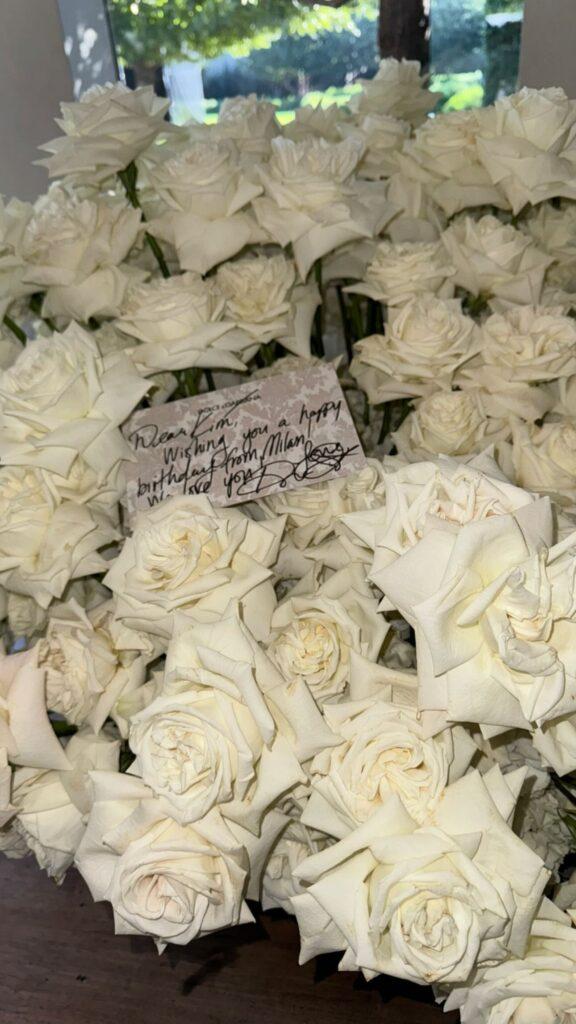 DOLCE & GABBANA
Dear Kim,
Wishing you a happy
birthday from Milan
We love you!